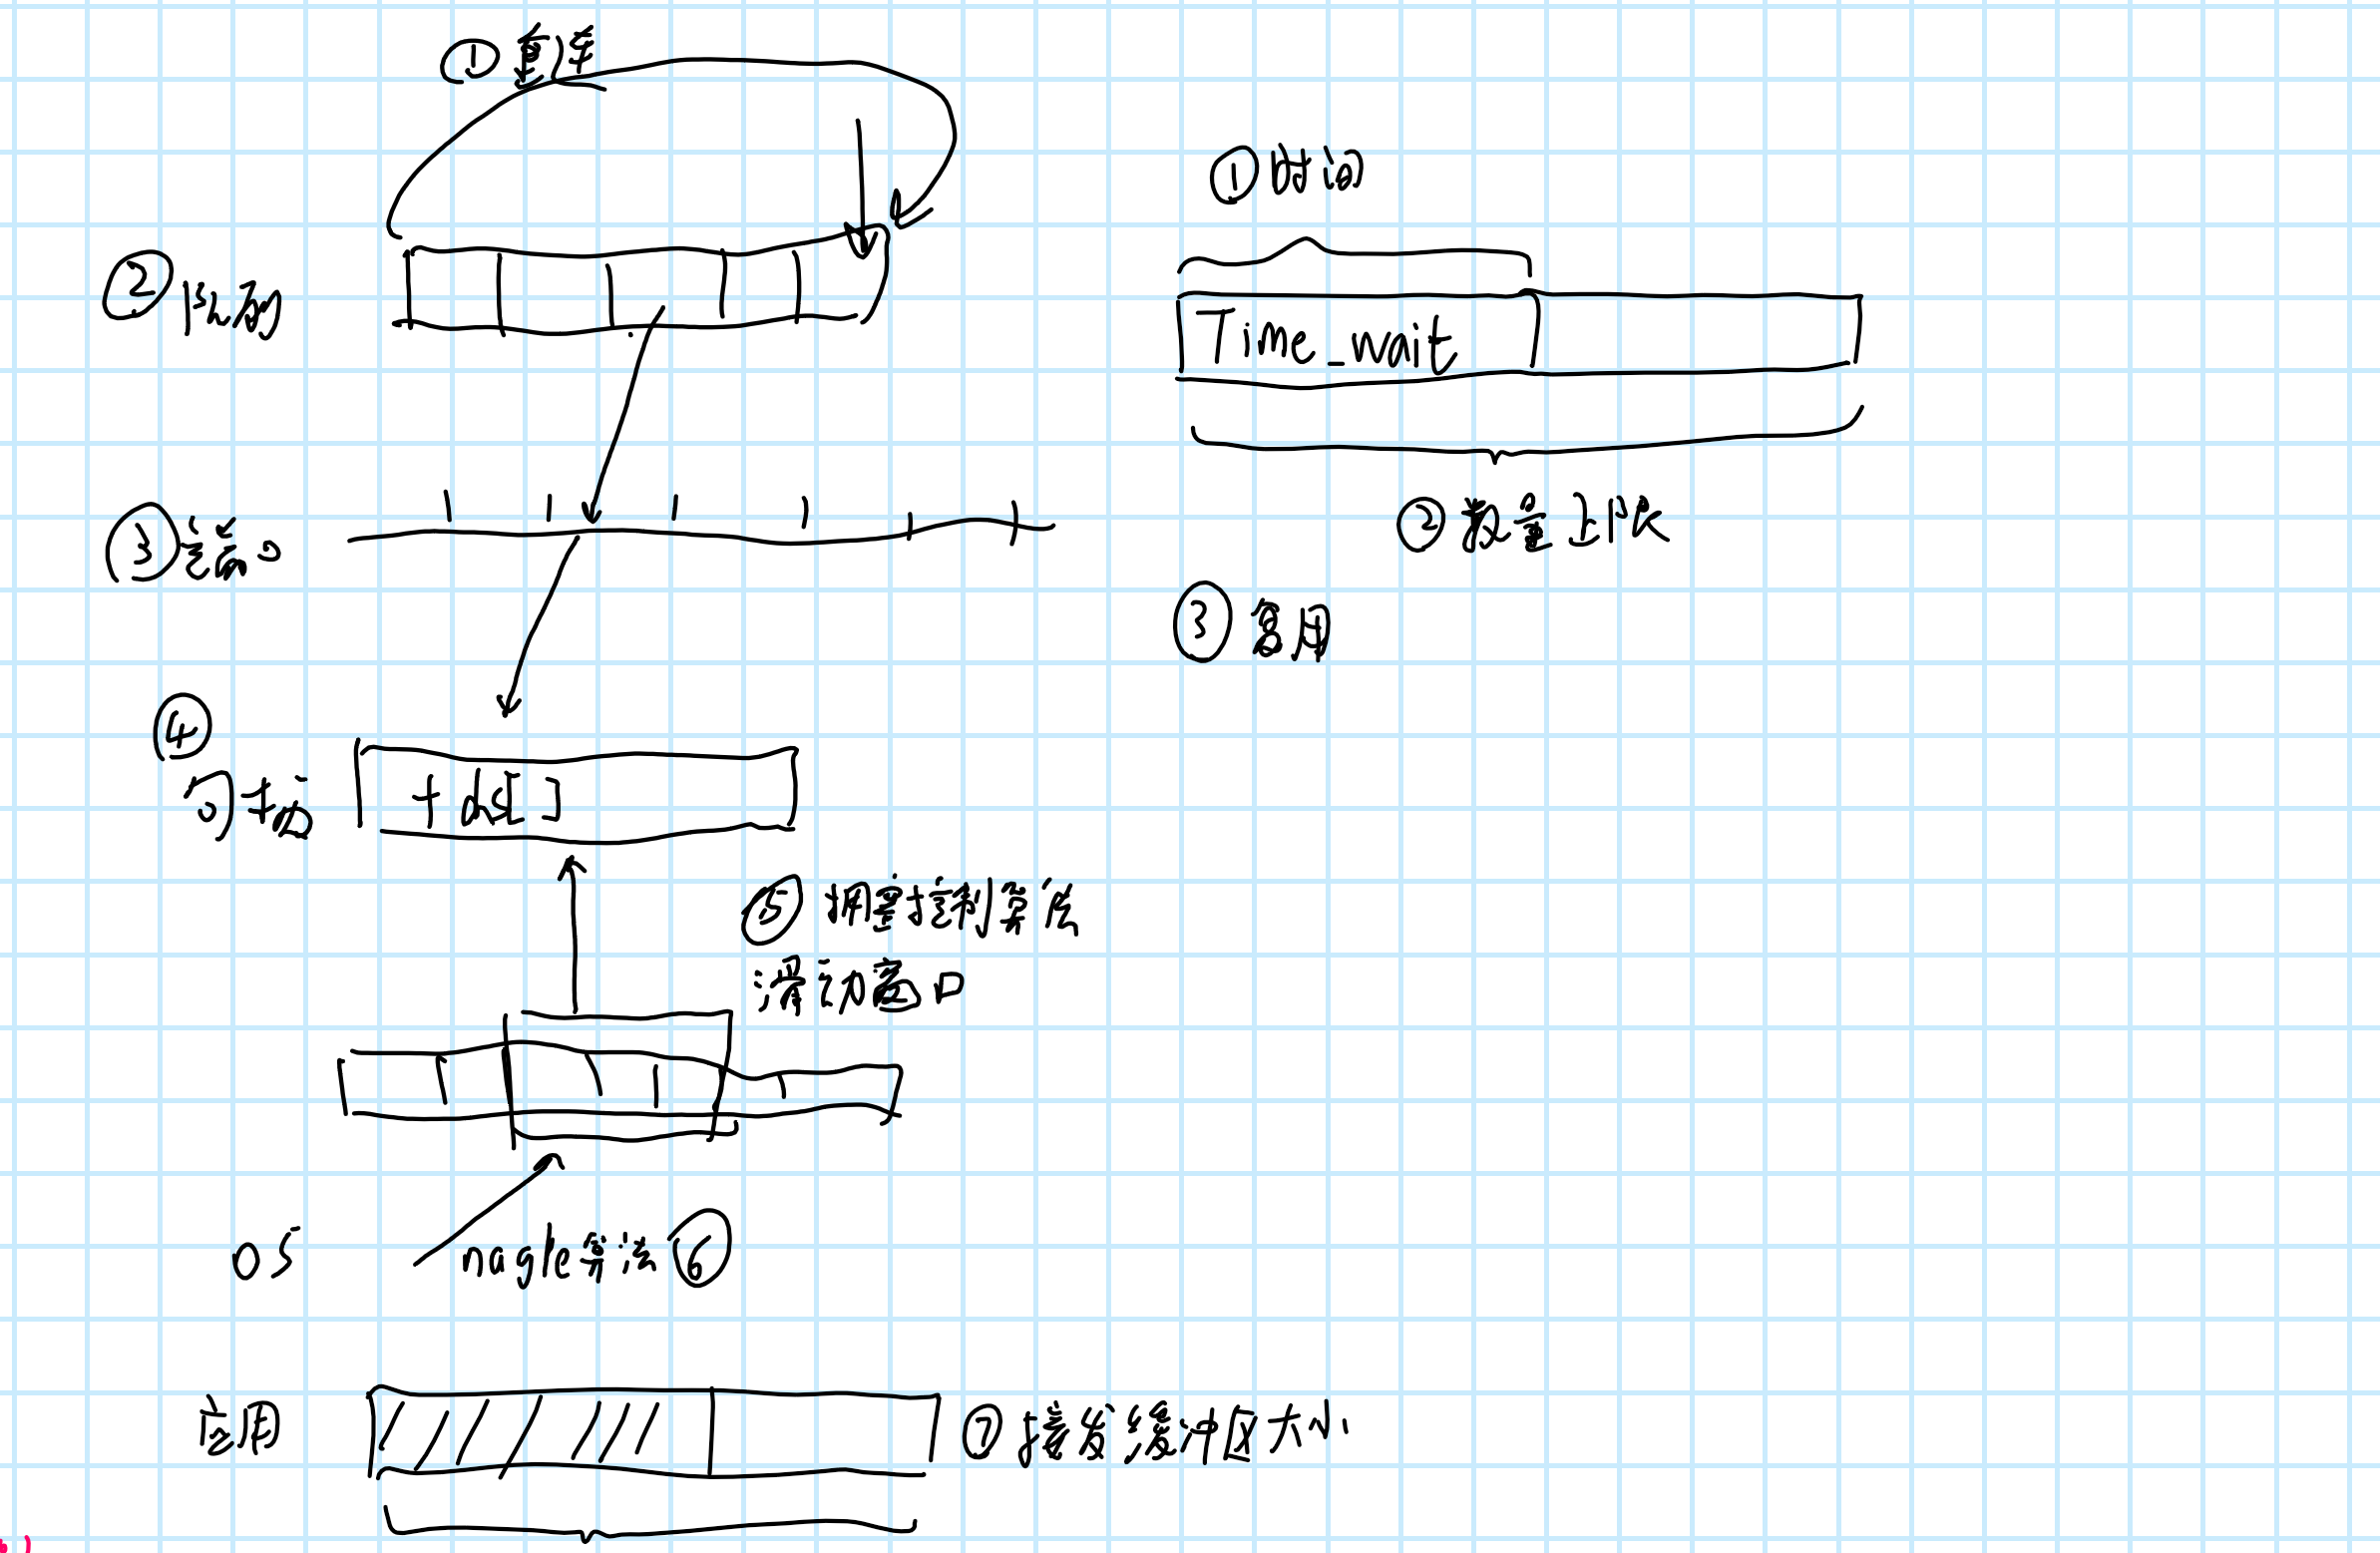 ① 重传
② 队列
③ 端口
④
可扩
⑤ 拥塞控制算法
滑动窗口
OS
nagle算法 ⑥
应用
⑦ 接发缓冲区大小
① 时间
Time_wait
② 数量上限
③ 复用